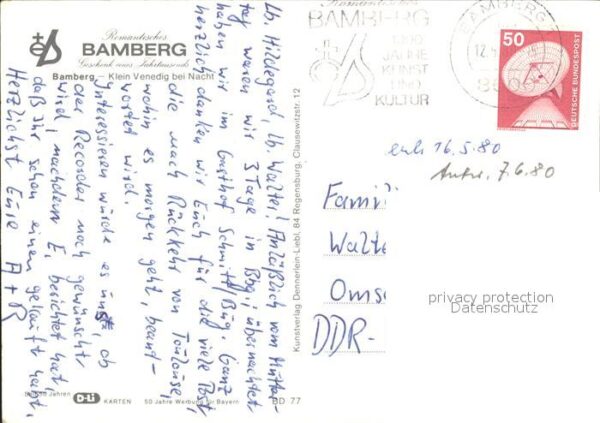 Romantisches
BAMBERG
Geschenk eines Jahrtausends
Bamberg – Klein Venedig bei Nacht
Lb. Hildegard, lb. Walter! Anläßlich vom Mutter-
tag waren wir 3 Tage in Bbg., übernachtet
haben wir im Gasthof Schmitt/Bug. Ganz
herzlich danken wir Euch für die viele Post
die nach Rückkehr von Toulouse,
wohin es morgen geht, beand-
wortet wird.
Interessieren würde es uns, ob
der Recorder noch gewünscht
wird, nachdem E. berichtet hat,
daß Ihr schon einen gekauft habt.
Herzlichst Eure A + R
Jahren D-Li KARTEN 50 Jahre Werbung für Bayern BD 77
Kunstverlag Dennerlein-Liebl, 84 Regensburg, Clausewitzstr. 12
Romantisches
BAMBERG
JAHRE
KUNST
UND
KULTUR
BAMBURG
50
DEUTSCHE BUNDESPOST
erh. 16.5.80
Antw. 7.6.80
Famili
Walte
Omse
DDR-
privacy protection
Datenschutz